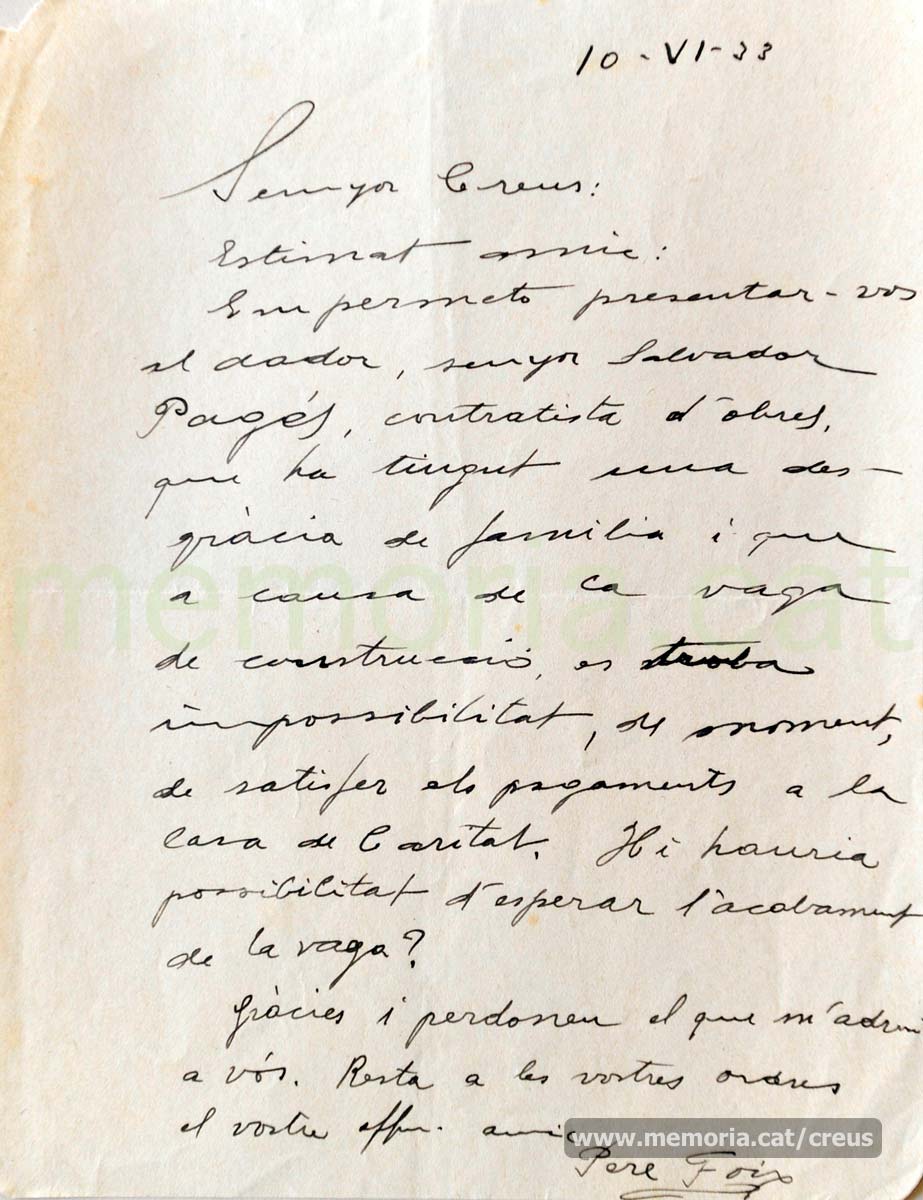 10-VI-33
Senyor Creus:
Estimat amic:
Em permeto presentar-vos
el dador, senyor Salvador
Pagés, contratista d'obres,
que ha tingut una des-
gràcia de familia i que
a causa de la vaga
de construcció, es troba
impossibilitat, de moment,
de satisfer els pagaments a la
Casa de Caritat. Hi hauria
possibilitat d'esperar l'acabament
de la vaga?
Gràcies i perdoneu el que m'adreci
a vós. Resta a les vostres ordres
el vostre affm. amic
Pere Foix
memoria.cat
www.memoria.cat/creus